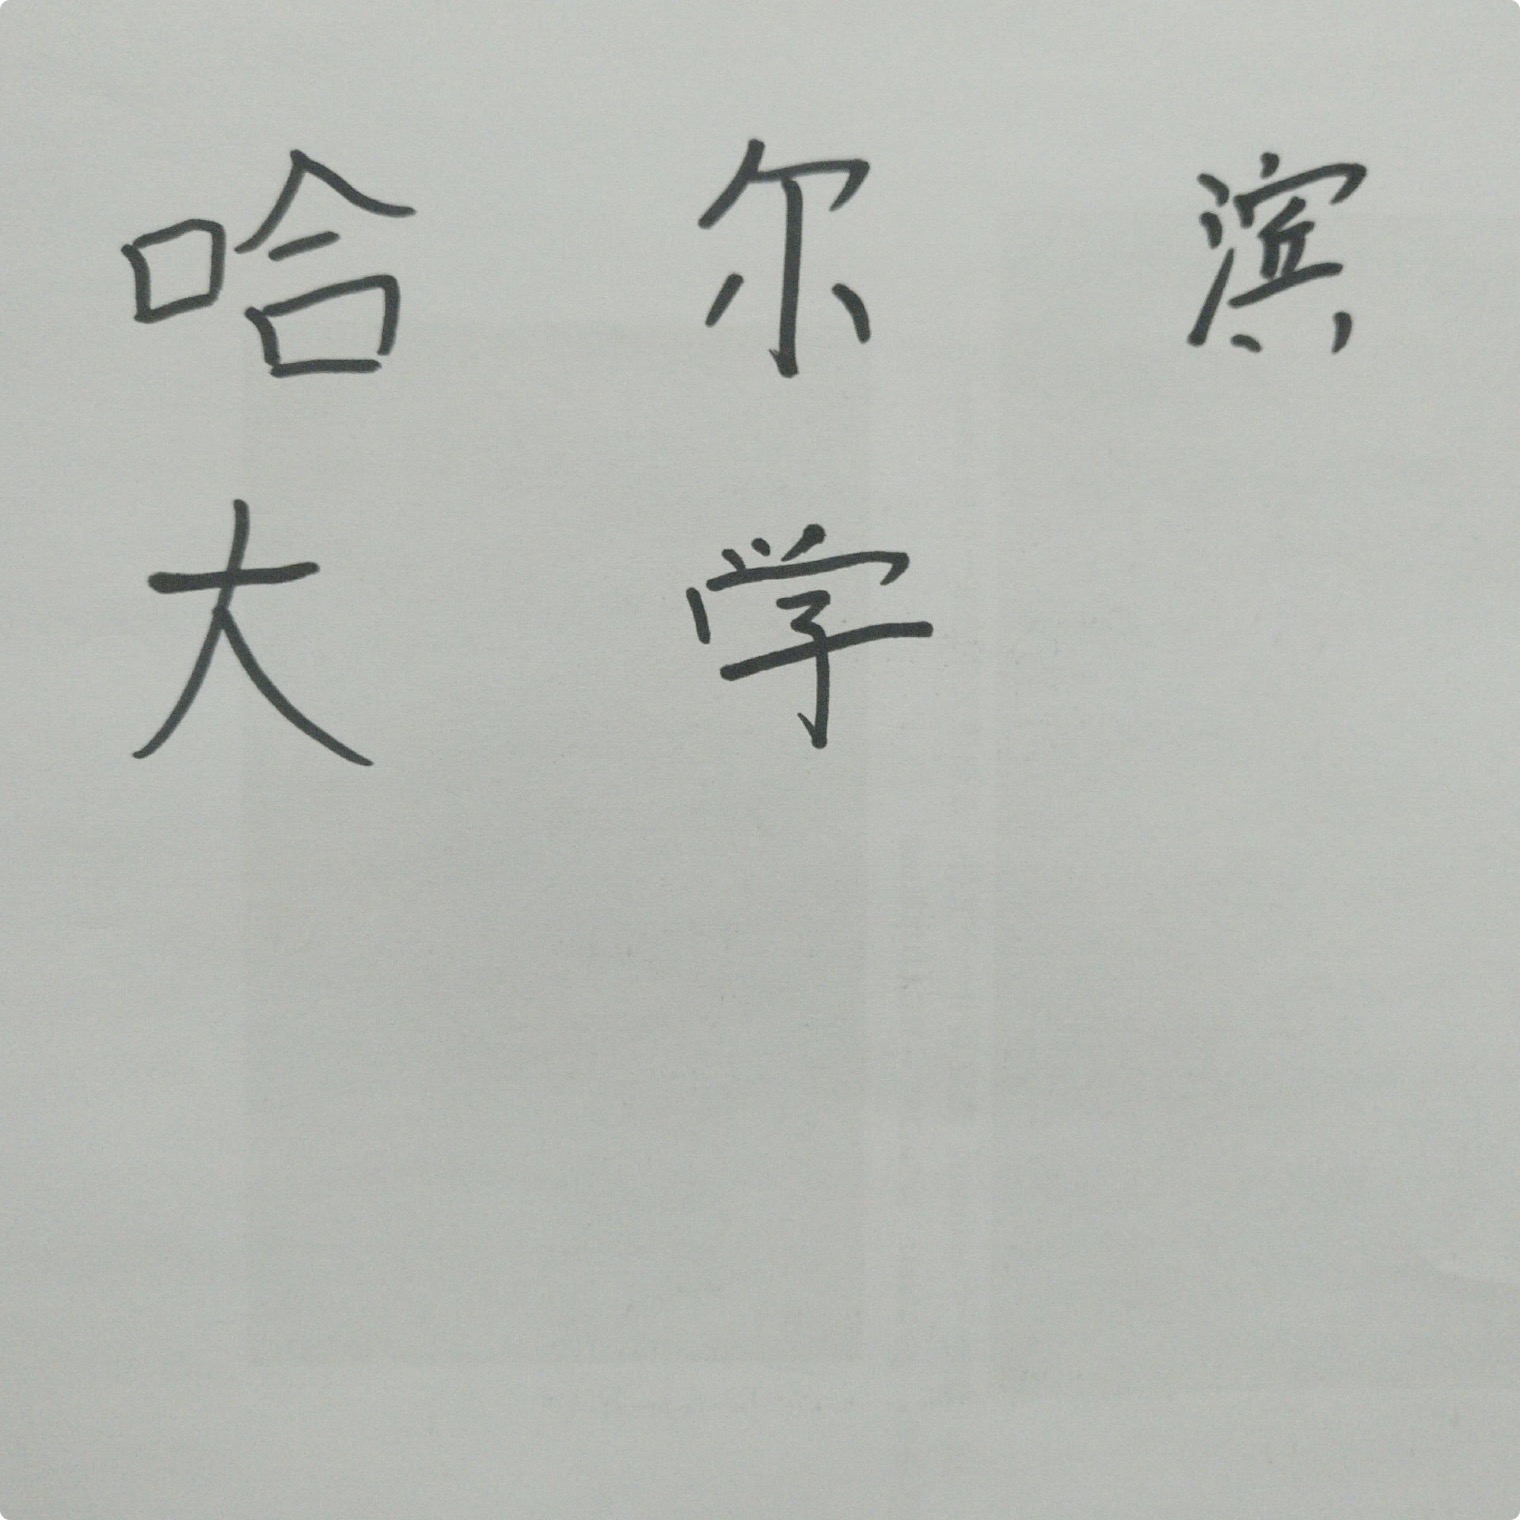 哈尔滨
大学